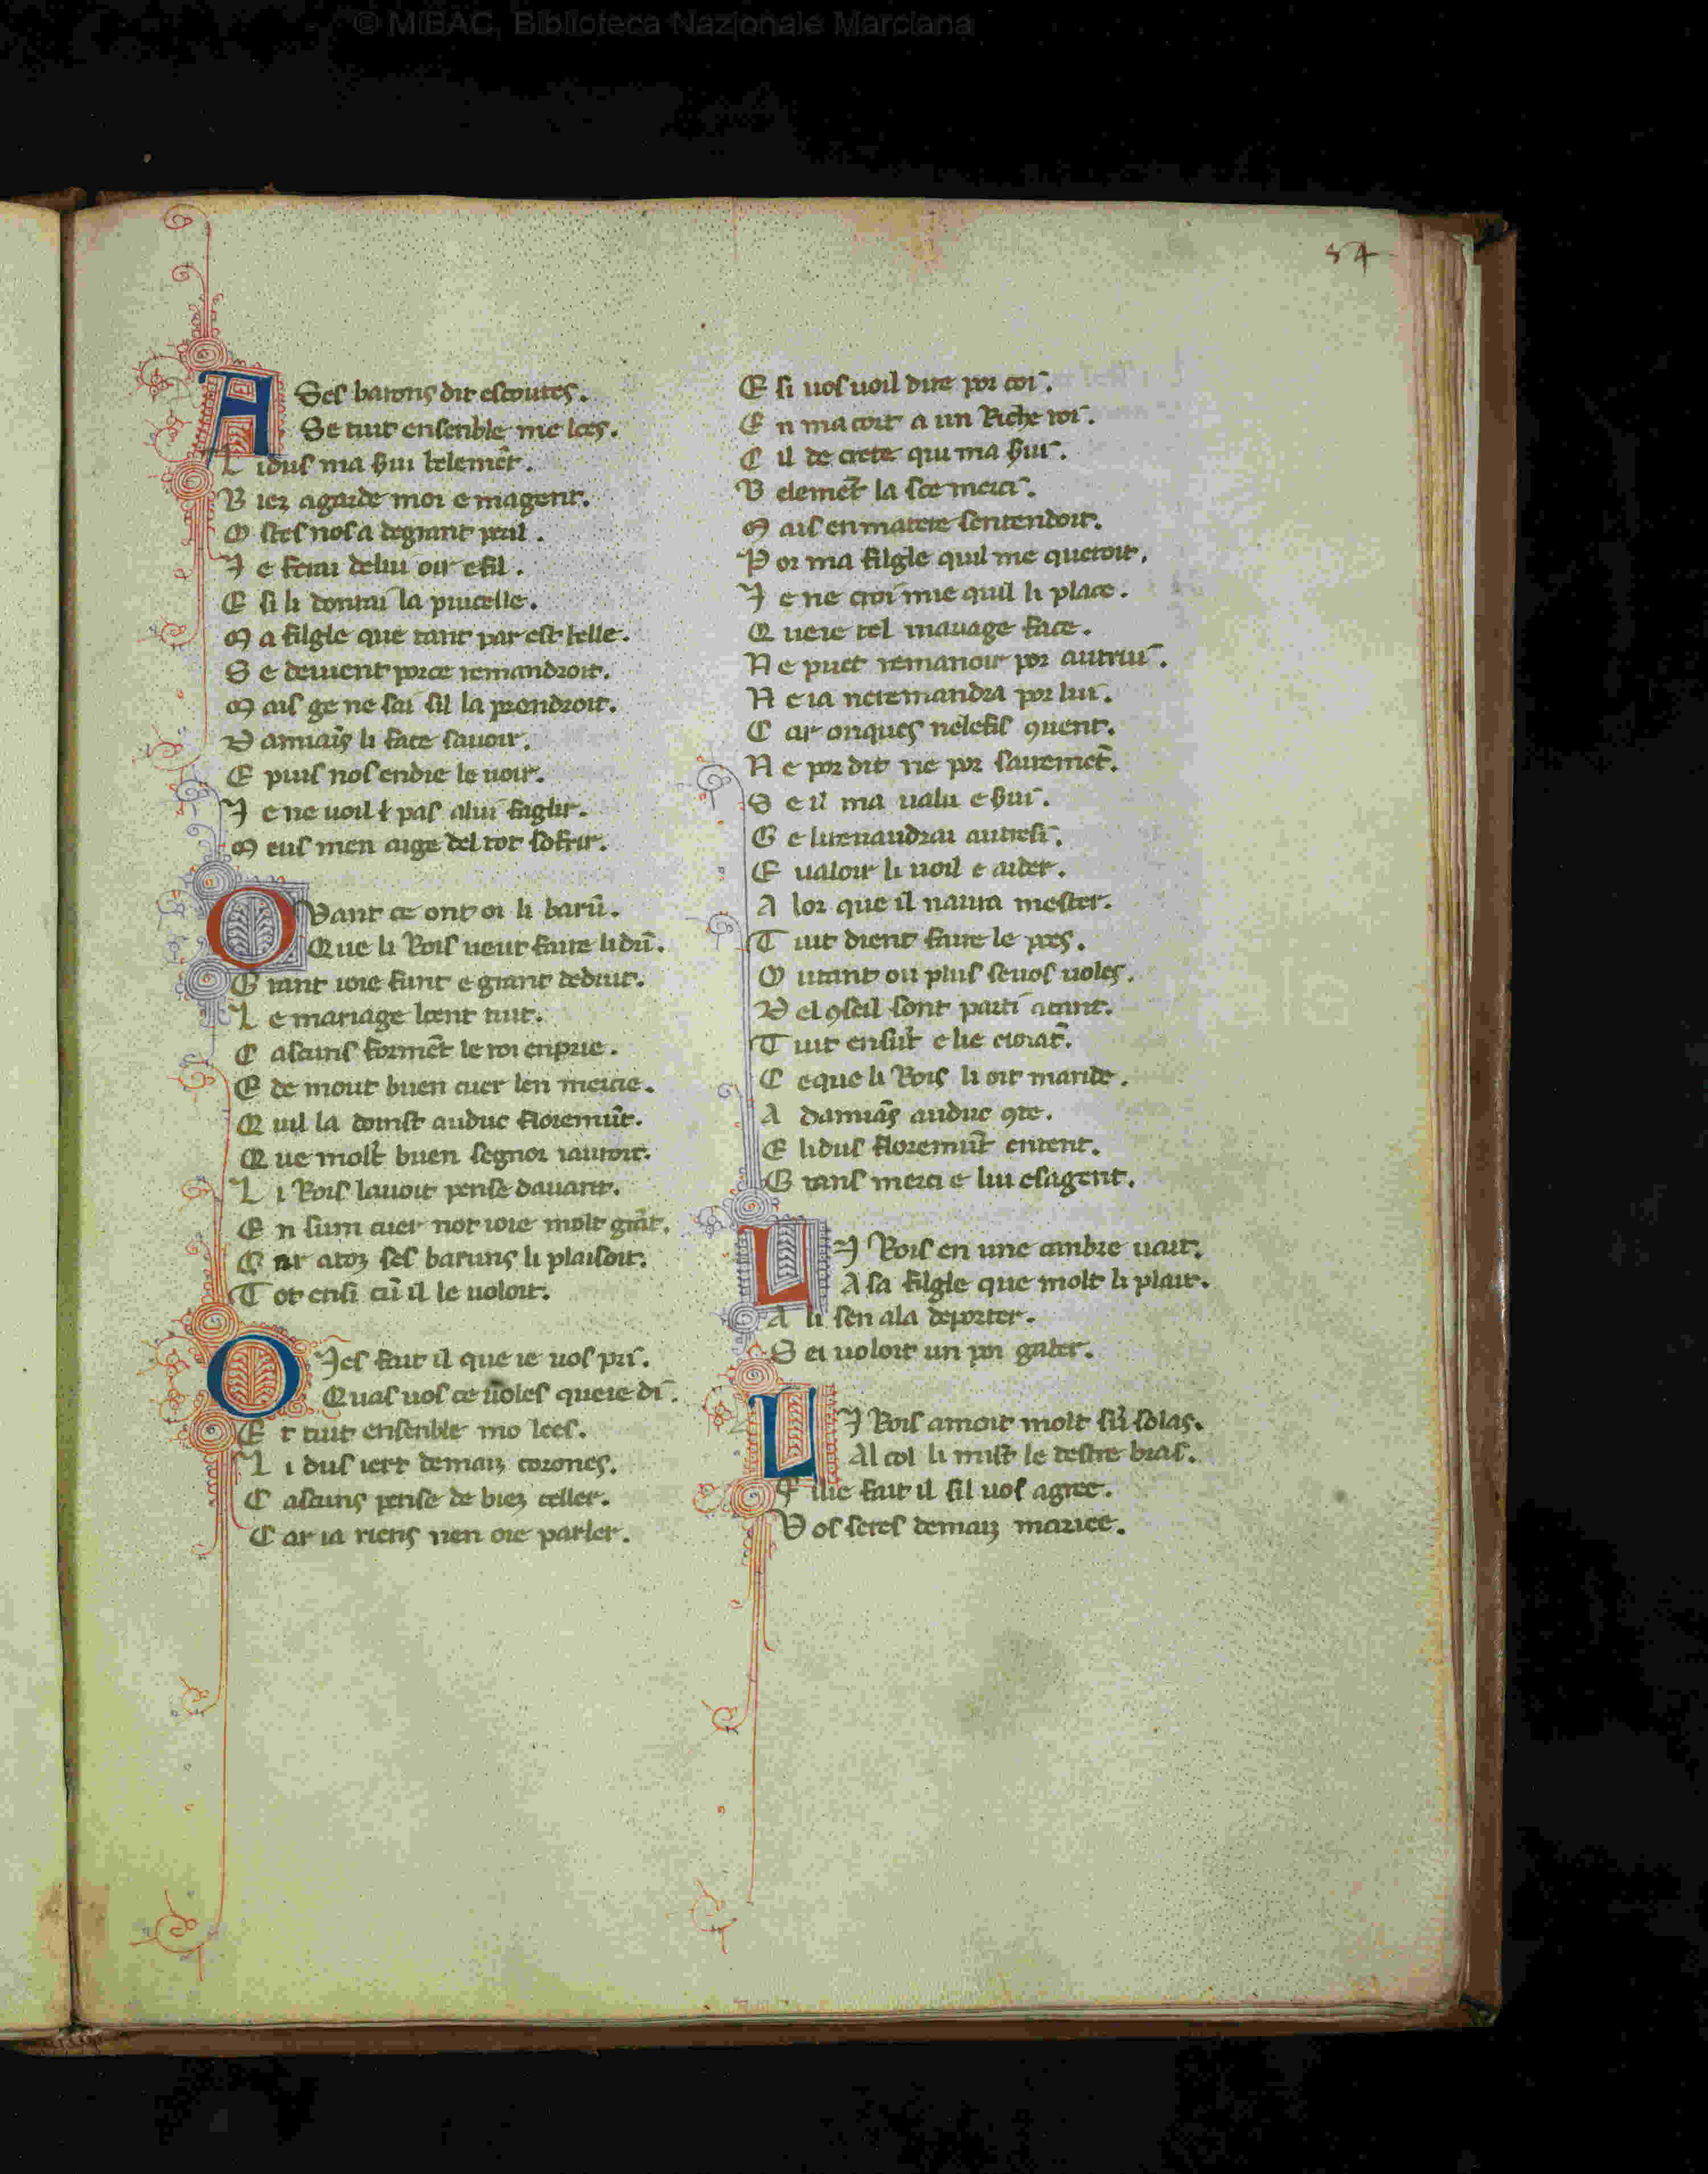 © MiBAC, Biblioteca Nazionale Marciana
54
A Ses barons dit escoutes.
Se tuit ensenble me loes.
L idus ma ẜui belemēt.
B iez agarde moi e magent.
O stes nos a degrant peril.
J e ferai delui oir e fil.
E si li donrai la pucelle.
M a filgle que tant par est belle.
S e deuient porce remandroit.
M ais ge ne sai sil la prendroit.
D amiaīs li face sauoir.
E puis nos endie le uoir.
J e ne uoil pas alui faglir.
M eus men aige del tot sofrir.
Q Vant ce ont oi li barū.
Que li Rois ueut faire lidū.
G rant ioie funt e grant deduit.
L e mariage loent tuit.
C ascuns formēt le roi enprie.
E de mout buen cuer len mercie.
Q uil la doinst auduc floremūt.
Q ue molt buen segnor iauroit.
L i Rois lauoit pense dauant.
E n sum cuer not ioie molt grāt.
C ar atoz ses baruns li plaisoit.
T ot ensi cū il le uoloit.
O Jes fait il que ie uos pri.
Quas uos ce uoles queie di.
E t tuit ensenble mo loes.
L i dus iert demaiz corones.
C ascuns pense de biez celler.
C ar ia riens nen oie parler.
E si uos uoil dire por coi.
E n ma cort a un Riche roi.
C il de crete qui ma ẜui.
B elemēt la soe merci.
M ais en matere sentendoit.
P or ma filgle quil me queroit.
J e ne croi mie quil li place.
Q ueie tel mariage face.
N e puet remanoir por autrui.
N e ia neremandra por lui.
C ar onques nelefis ꝯuent.
N e por dit ne por sairemēt.
S e il ma ualu e ẜui.
G e lireuaudrai autresi.
E ualoir li uoil e aider.
A lor que il naura mester.
T uit dient faire le poes.
O utant ou plus seuos uoles.
D el ꝯseil sont parti atant.
T uit ensūt e lie eioiāt.
C eque li Rois li ot mande.
A damiās auduc ꝯte.
E lidus floremūt entent.
G rans merci e lui esagent.
L J Rois en une canbre uait.
A sa filgle que molt li plait.
A li sen ala deporter.
S ei uoloit un poi gaber.
L J Rois amoit molt sū solas.
Al col li mist le destre bras.
F ilie fait il sil uos agree.
V os seres demaiz mariee.